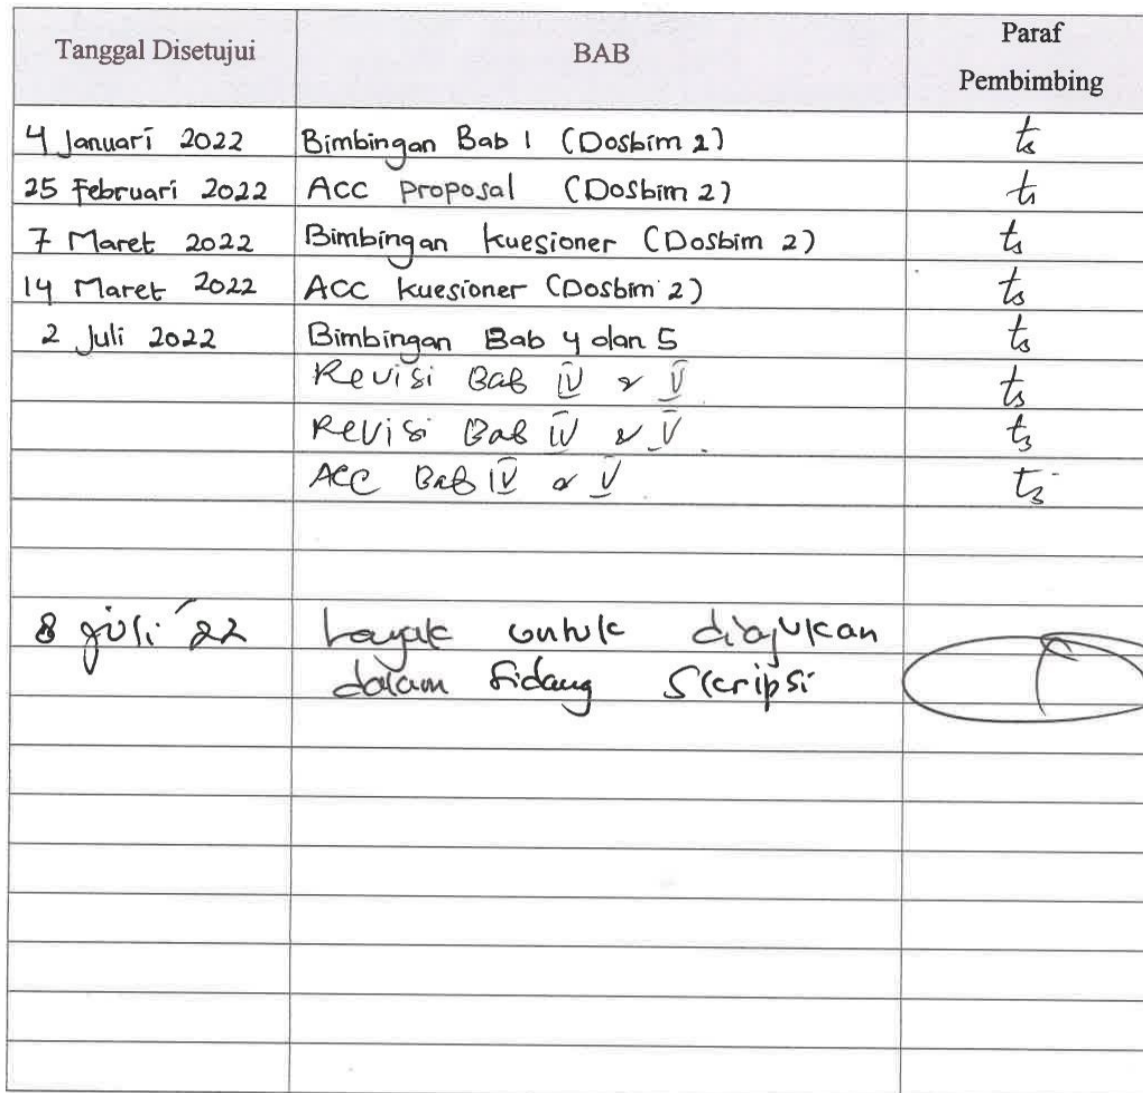 Tanggal Disetujui BAB Paraf Pembimbing
4 Januari 2022 Bimbingan Bab 1 (Dosbim 2) ts
25 Februari 2022 Acc proposal (Dosbim 2) ts
7 Maret 2022 Bimbingan kuesioner (Dosbim 2) ts
14 Maret 2022 Acc kuesioner (Dosbim 2) ts
2 Juli 2022 Bimbingan Bab 4 dan 5 ts
Revisi Bab IV & V ts
Revisi Bab IV & V. ts
Acc Bab IV & V ts
8 Juli '22 Layak untuk diajukan
dalam Sidang Skripsi